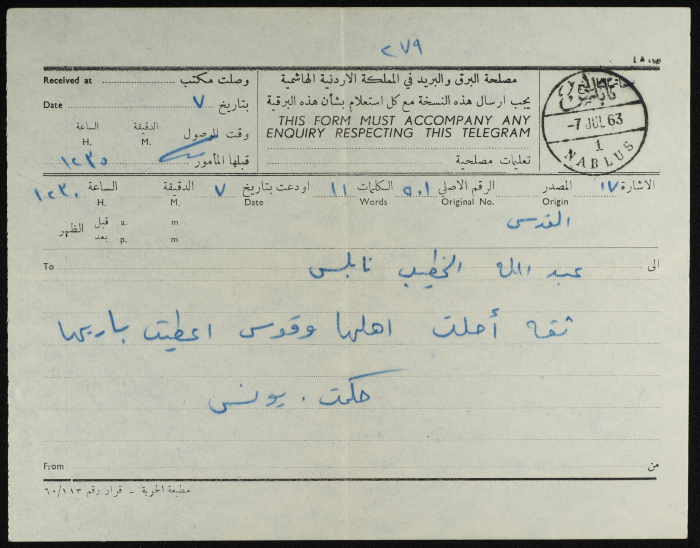 ٢٧٩
مصلحة البرق والبريد في المملكة الاردنية الهاشمية
يجب ارسال هذه النسخة مع كل استعلام بشأن هذه البرقية
THIS FORM MUST ACCOMPANY ANY
ENQUIRY RESPECTING THIS TELEGRAM
تعليمات مصلحية
Received at وصلت مكتب
Date ٧ بتاريخ
الساعة الدقيقة وقت الوصول
H. M.
١٢٣٥ قبلها المأمور
نابلس
-7 JUL 63
1
NABLUS
الاشارة ١٧ المصدر الرقم الاصلي ٥٠١ الكلمات ١١ اودعت بتاريخ ٧ الدقيقة الساعة ١٢٣٠
Origin Original No. Words Date M. H.
القدس
قبل a. m
بعد p. m
الظهر
To عبد الله الخطيب نابلس الى
ثقه أحلت اهلها وقدوس اعطيت باريها
حكمت . يونس
From من
مطبعة الحرية - قرار رقم ٦٠/١١٣